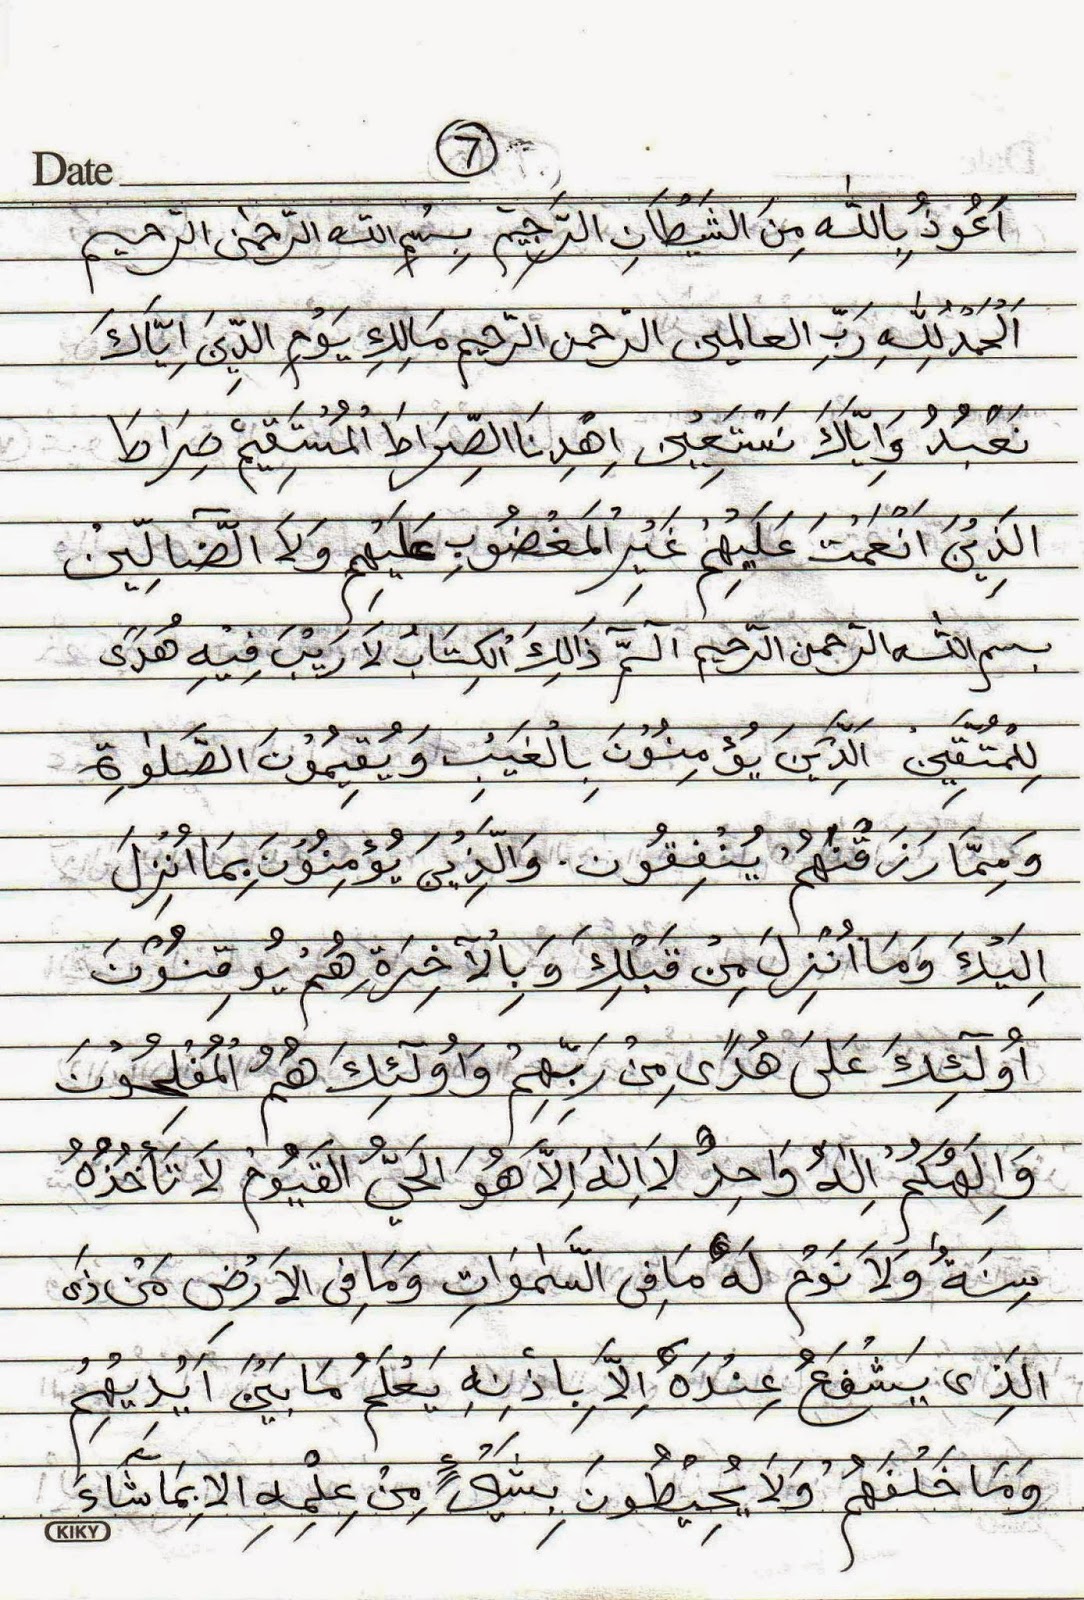 7
Date
اَعُوْذُ بِاللّٰهِ مِنَ الشَّيْطَانِ الرَّجِيْمِ بِسْمِ اللّٰه الرّحْمٰن الرّحيم
اَلْحَمْدُ لِلّٰهِ رَبِّ العالمين الرّحمن الرّحيم مَالِكِ يَوْمِ الدِّيْنِ اِيَّاكَ
نَعْبُدُ وَاِيَّاكَ نَسْتَعِيْن اِهْدِنَا الصِّرَاطَ الْمُسْتَقِيْمَ صِرَاطَ
الَّذِيْنَ اَنْعَمْتَ عَلَيْهِمْ غَيْرِ الْمَغْضُوْبِ عَلَيْهِمْ وَلَا الضَّآلِّيْنَ
بسم اللّٰه الرّحمن الرّحيم الٓـمّٓ ذَالِكَ الْكِتَابُ لَا رَيْبَ فِيْهِ هُدًى
لِلْمُتَّقِيْنَ الَّذِيْنَ يُؤْمِنُوْنَ بِالْغَيْبِ وَيُقِيْمُوْنَ الصَّلٰوةَ
وَمِمَّا رَزَقْنٰهُمْ يُنْفِقُوْن . وَالَّذِيْنَ يُؤْمِنُوْنَ بِمَا اُنْزِلَ
اِلَيْكَ وَمَا اُنْزِلَ مِنْ قَبْلِكَ وَبِالْآخِرَةِ هُمْ يُوْقِنُوْنَ
اُولٓئِكَ عَلَى هُدًى مِنْ رَبِّهِمْ وَاُولٓئِكَ هُمُ الْمُفْلِحُوْنَ
وَاِلٰهُكُمْ اِلٰهٌ وَاحِدٌ لَا اِلٰهَ اِلَّا هُوَ الْحَيُّ الْقَيُّوْمُ لَا تَأْخُذُهُ
سِنَةٌ وَلَا نَوْمٌ لَهُ مَا فِى السَّمٰوَاتِ وَمَا فِى الْاَرْضِ مَنْ ذَى
الَّذِى يَشْفَعُ عِنْدَهُ اِلَّا بِاذْنِهِ يَعْلَمُ مَا بَيْنَ اَيْدِيْهِمْ
وَمَا خَلْفَهُمْ وَلَا يُحِيْطُوْنَ بِشَيْءٍ مِنْ عِلْمِهِ الا بِمَا شَاءَ
KIKY